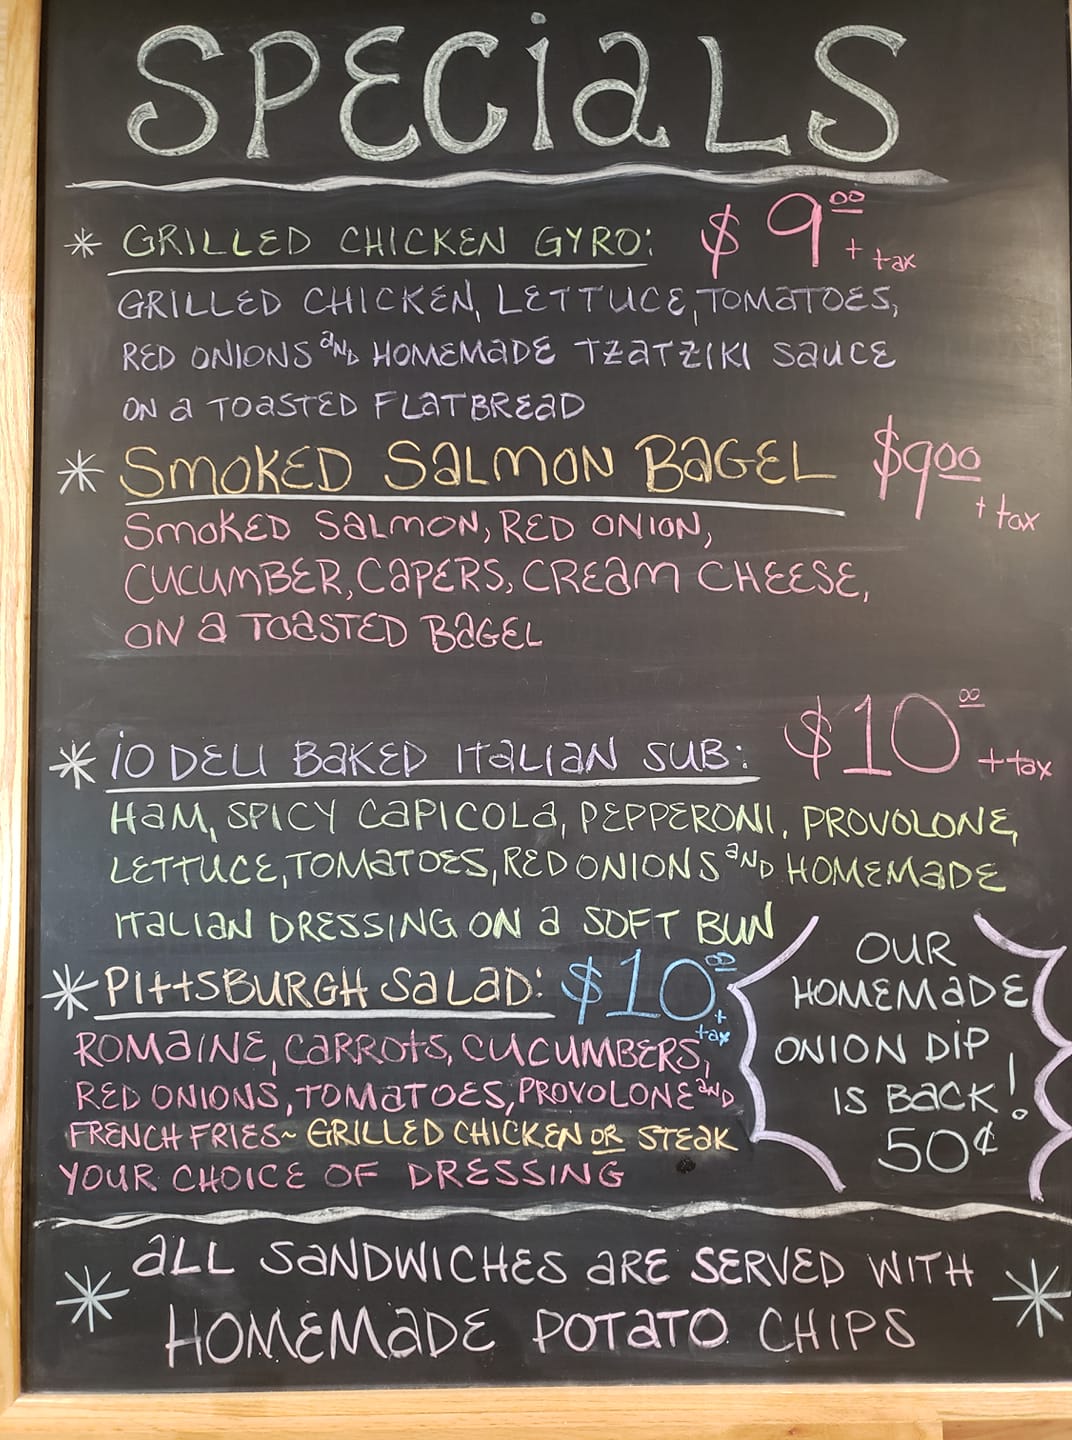 SPECiaLS
* GRILLED CHICKEN GYRO: $9.00 + tax
GRILLED CHICKEN, LETTUCE, TOMaTOES,
RED ONIONS aND HOMEMaDE TZaTZIKI SaUCE
ON a TOaSTED FLaTBREaD
* SMOKED SaLMON BaGEL $9.00 + tax
SMOKED SaLMON, RED ONION,
CUCUMBER, CaPERS, CREaM CHEESE,
ON a TOaSTED BaGEL
* iO DELI BaKED ITaLIaN SUB: $10.00 + tax
HaM, SPICY CaPICOLa, PEPPERONI, PROVOLONE,
LETTUCE, TOMaTOES, RED ONIONS aND HOMEMaDE
ITaLIaN DRESSING ON a SOFT BUN
* PittSBURGH SaLaD: $10.00 + tax
ROMaINE, CaRROtS, CUCUMBERS,
RED ONIONS, TOMaTOES, PROVOLONE aND
FRENCH FRIES~ GRILLED CHICKEN OR STEaK
YOUR CHOICE OF DRESSING
OUR
HOMEMaDE
ONION DIP
IS BaCK!
50¢
aLL SaNDWICHES aRE SERVED WITH
* HOMEMaDE POTaTO CHIPS *